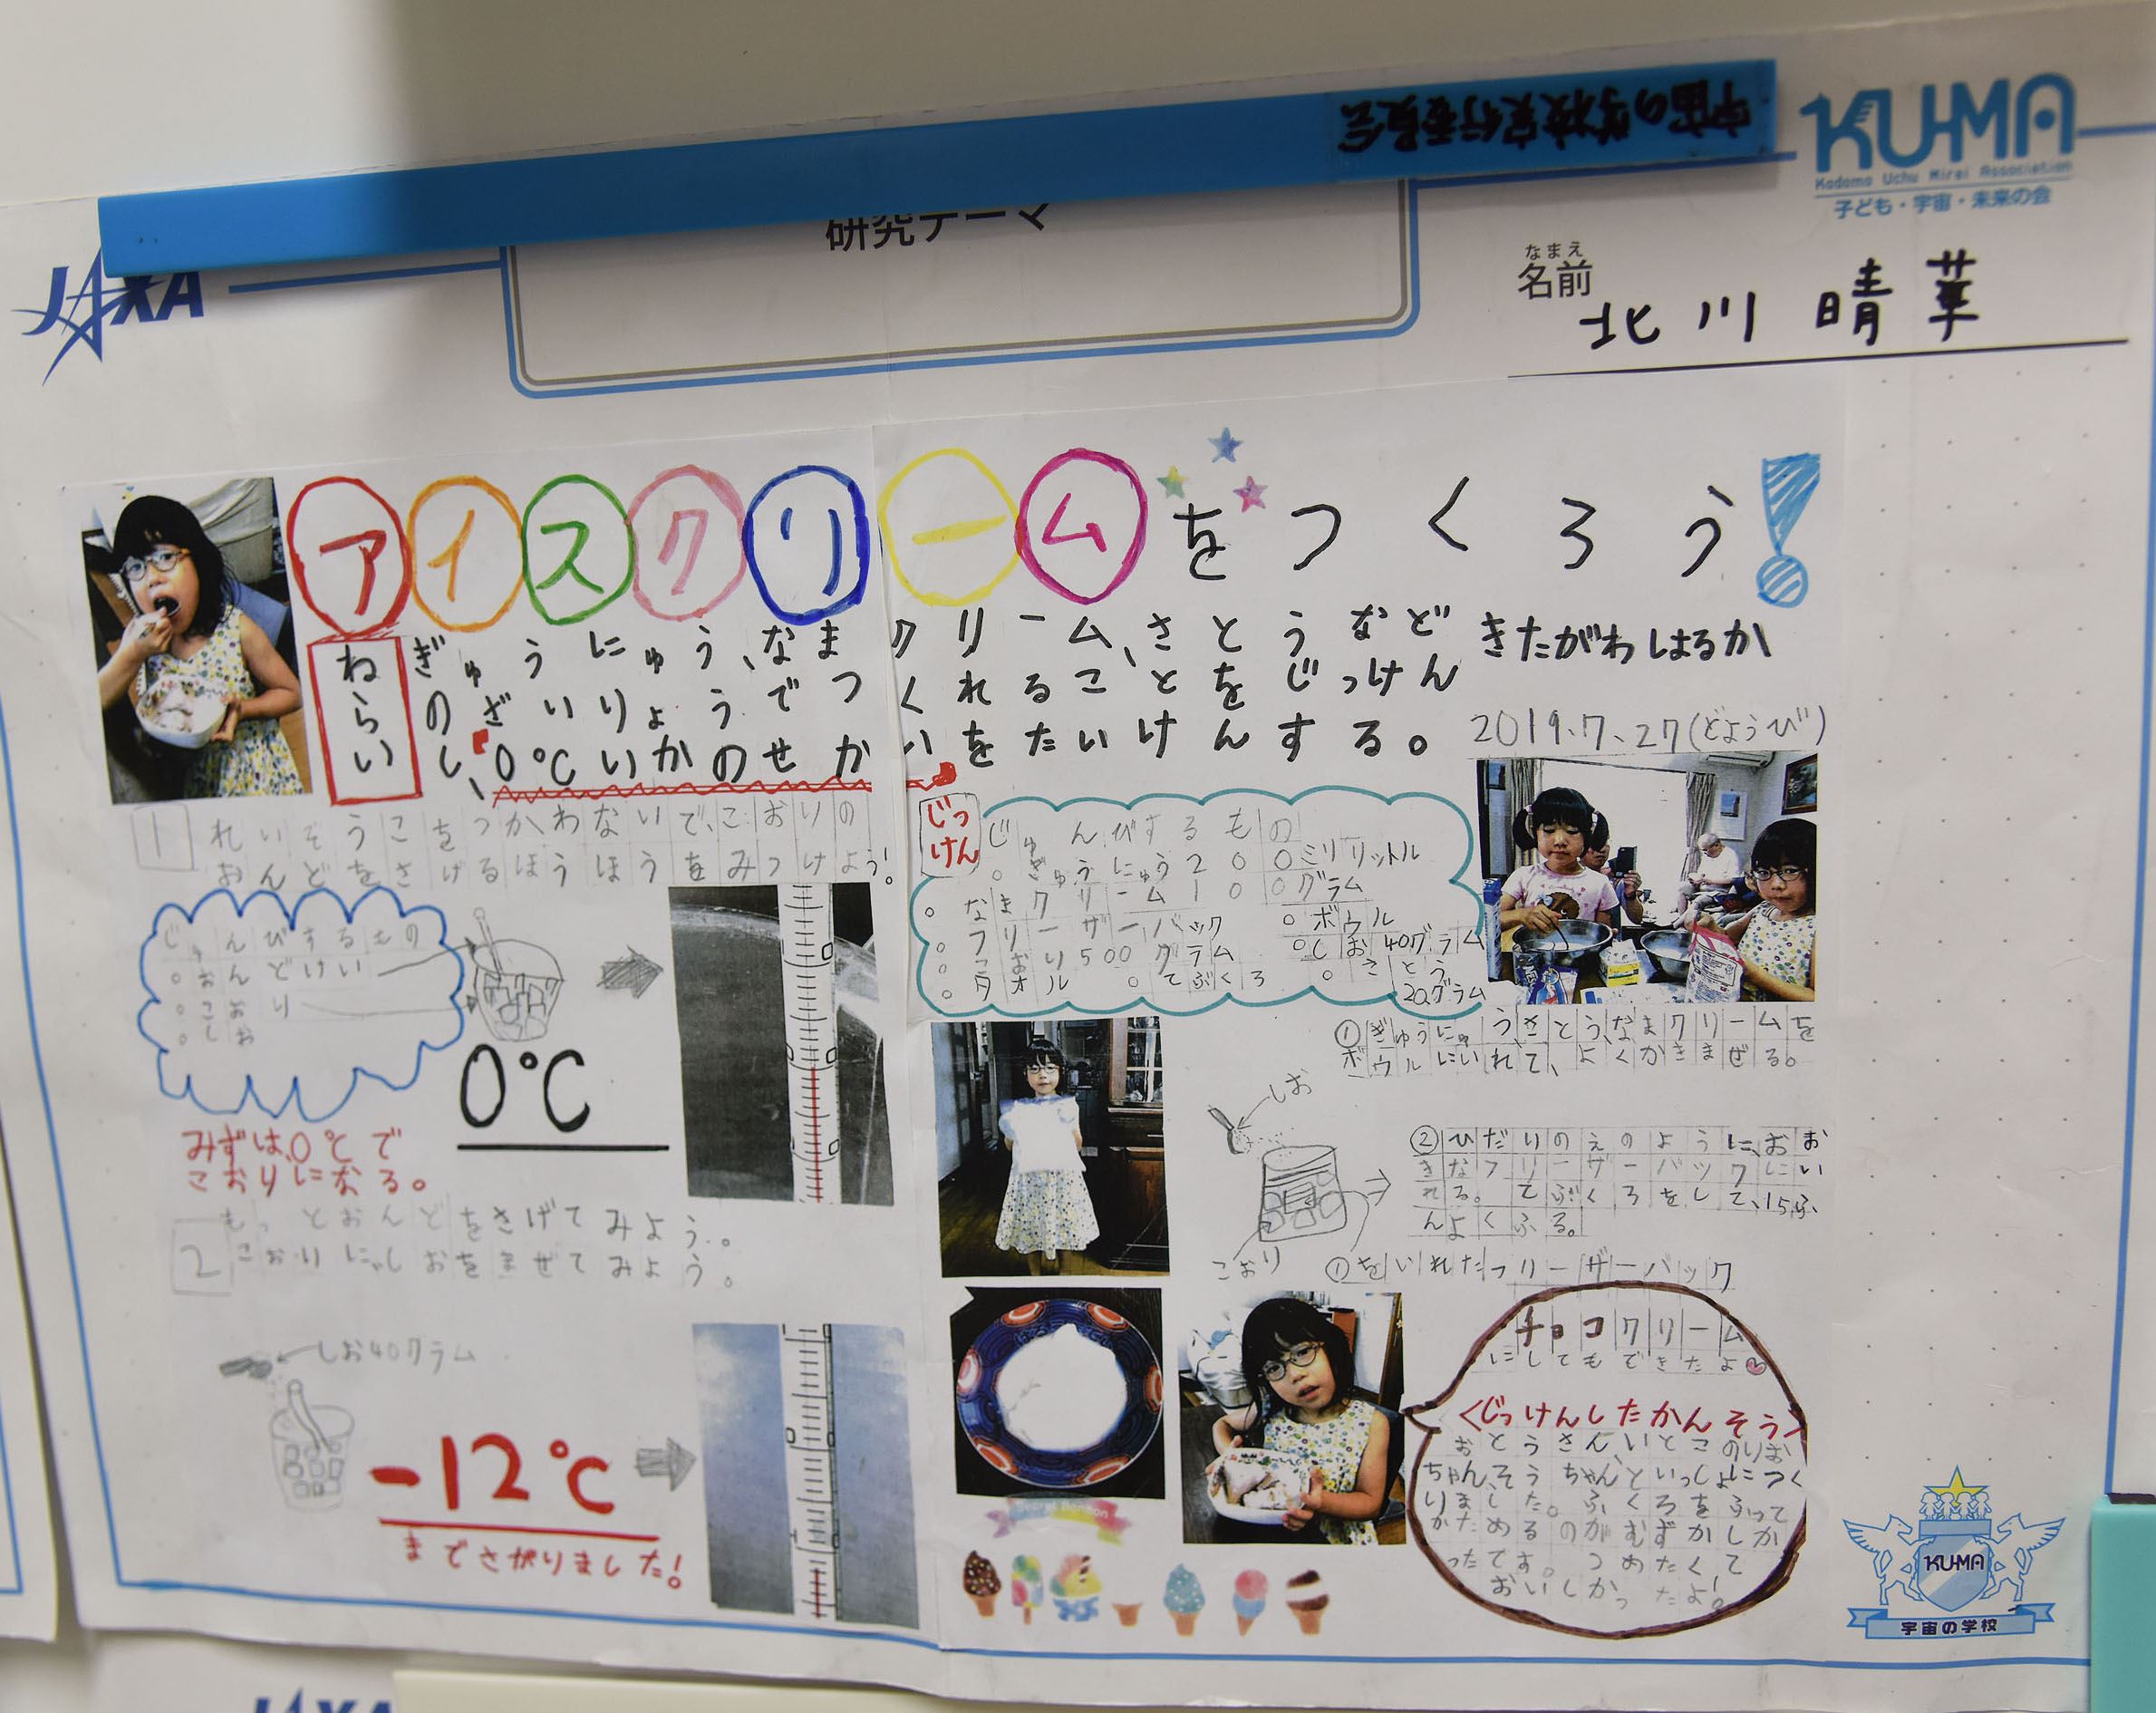 宇宙の学校実行委員会
KU-MA
Kodomo Uchu Mirai Association
子ども・宇宙・未来の会
JAXA
研究テーマ
なまえ
名前
北川 晴
アイスクリームをつくろう!
ねらい
ぎゅうにゅう、なまクリーム、さとうなど
のざいりょうでつくれることをじっけん
し、0℃いかのせかいをたいけんする。
きたがわはるか
2019.7.27(どようび)
1 れいぞうこをつかわないで、こおりの
おんどをさげるほうほうをみつけよう!
じゅんびするもの
○おんどけい
○こおり
○しお
0℃
みずは、0℃で
こおりになる。
2 もっとおんどをさげてみよう。
こおりにしおをまぜてみよう。
しお40グラム
-12℃
までさがりました!
じっけん
じゅんびするもの
○ぎゅうにゅう200ミリリットル
○なまクリーム100グラム
○フリーザーバック ○ボウル
○こおり500グラム ○しお40グラム
○タオル ○てぶくろ ○さとう
20グラム
①ぎゅうにゅう、さとう、なまクリームを
ボウルにいれて、よくかきまぜる。
しお
②ひだりのえのように、おお
きなフリーザーバックにい
れる。てぶくろをして、15ふ
んよくふる。
こおり
①をいれたフリーザーバック
チョコクリーム
にしてもできたよ
<じっけんしたかんそう>
おとうさん、いとこのりお
ちゃん、そうちゃんといっしょにつく
りました。ふくろをふって
かためるのがむずかしか
ったです。つめたくて
おいしかったよ!
KU-MA
宇宙の学校
JAXA